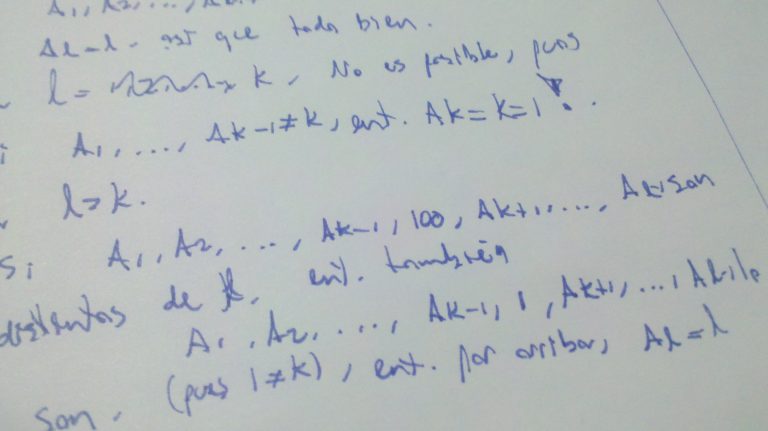 A1, A2, ...,
Al = l. así que todo bien.
l = k, No es posible, pues
A1, ..., Ak-1 ≠ k, ent. Ak = k = 1
l > k.
Si A1, A2, ..., Ak-1, 100, Ak+1, ..., Al-1 son
distintos de l, ent. también
A1, A2, ..., Ak-1, 1, Ak+1, ..., Al-1 lo
son. (pues 1 ≠ k), ent. por arriba, Al = l